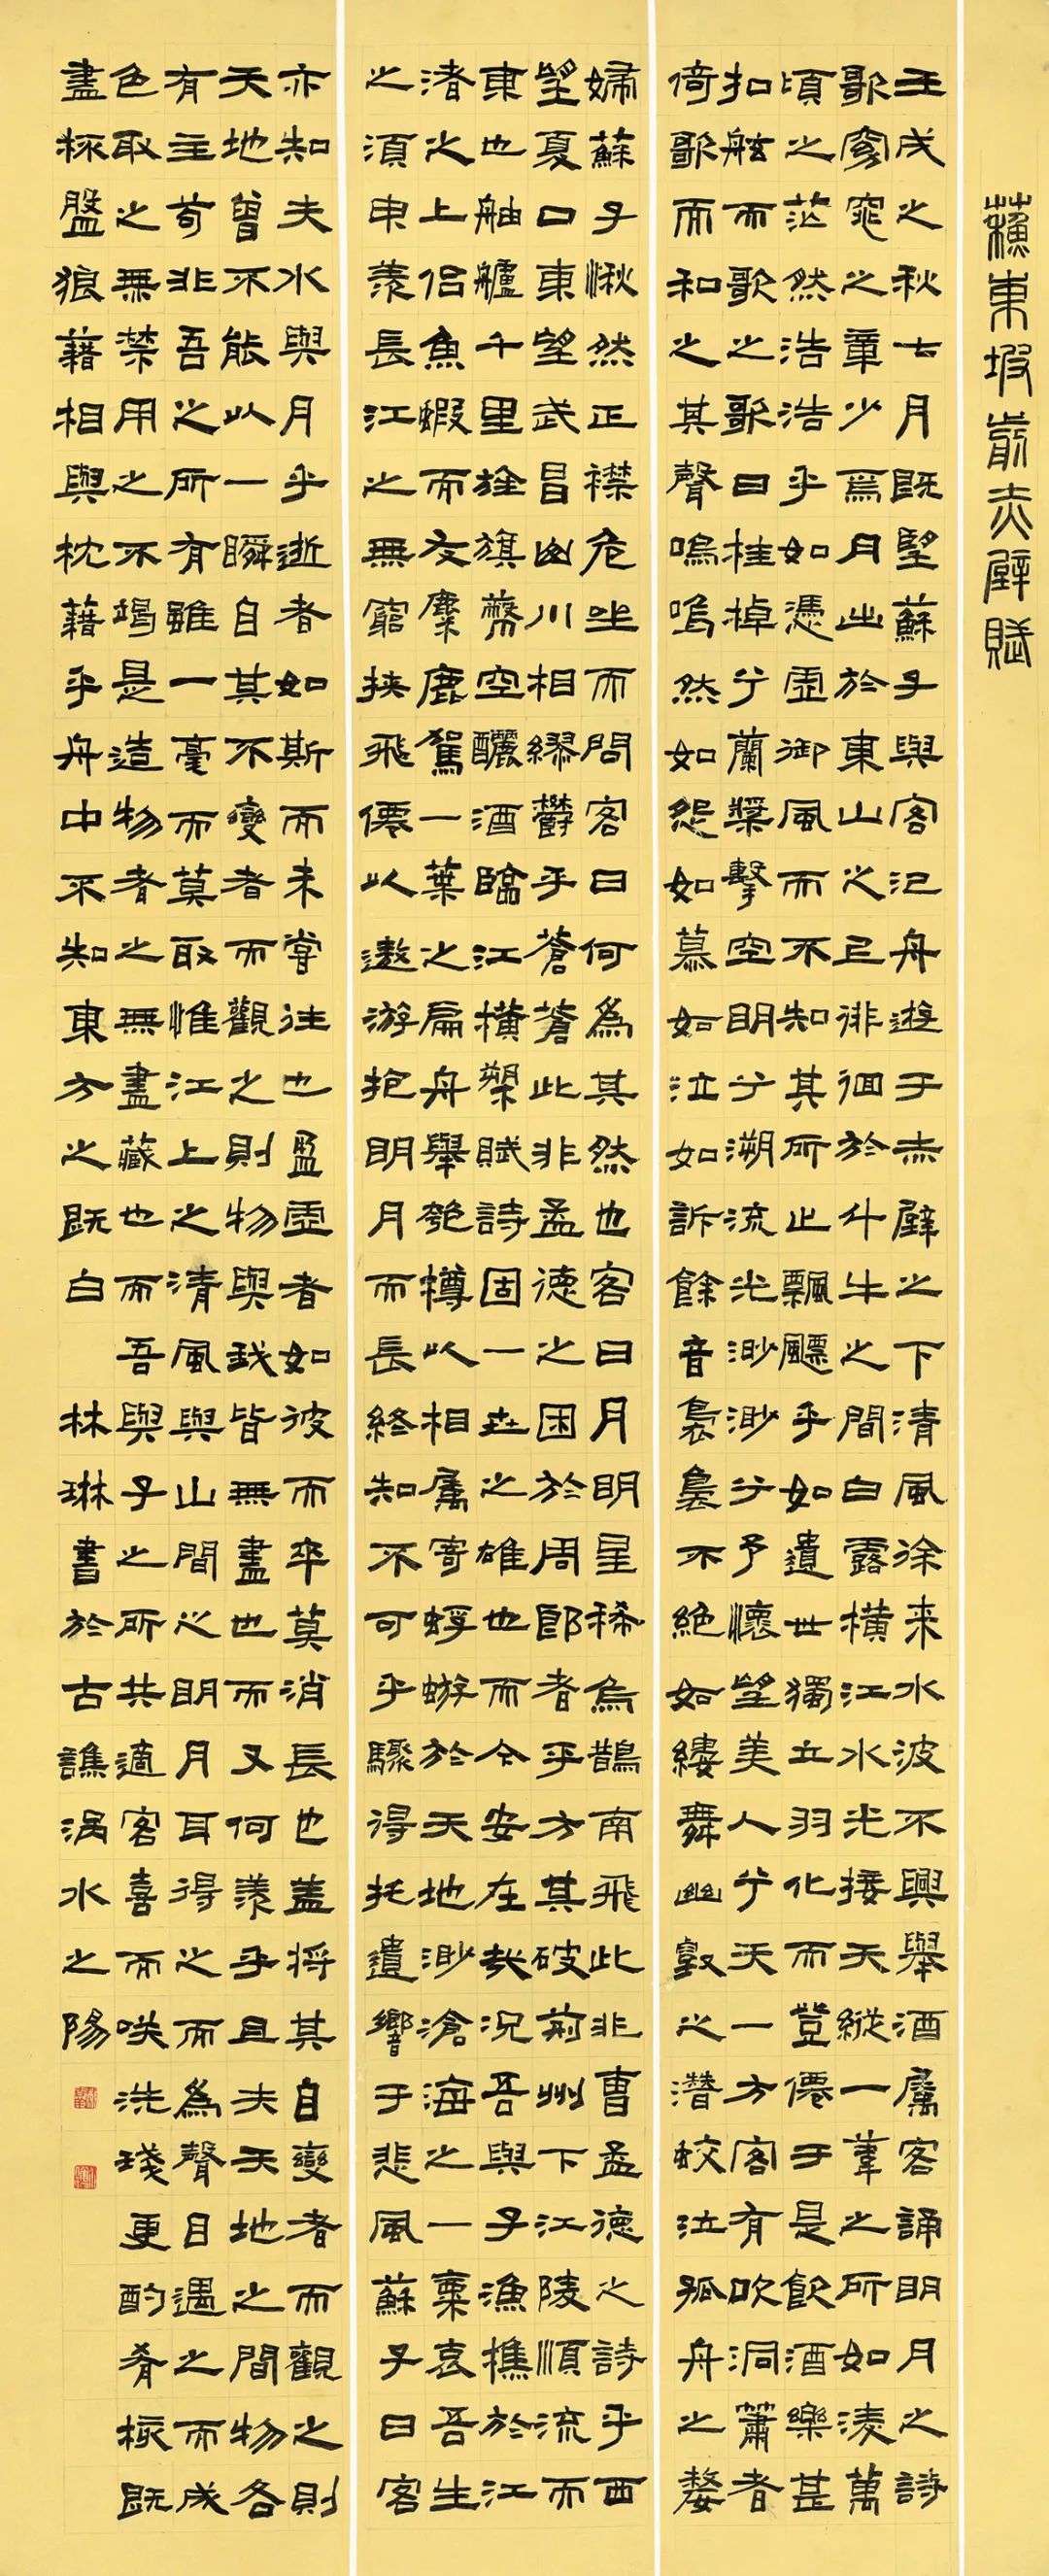 蘇東坡前赤壁賦
壬戌之秋七月既望蘇子與客泛舟遊于赤壁之下清風徐来水波不興舉酒屬客誦明月之詩
歌窈窕之章少焉月出於東山之上徘徊於斗牛之間白露橫江水光接天縱一葦之所如凌萬
頃之茫然浩浩乎如憑虛御風而不知其所止飄飄乎如遺世獨立羽化而登僊于是飲酒樂甚
扣舷而歌之歌曰桂棹兮蘭槳擊空明兮溯流光渺渺兮予懷望美人兮天一方客有吹洞簫者
倚歌而和之其聲嗚嗚然如怨如慕如泣如訴餘音裊裊不絕如縷舞幽壑之潛蛟泣孤舟之嫠
婦蘇子愀然正襟危坐而問客曰何為其然也客曰月明星稀烏鵲南飛此非曹孟德之詩乎西
望夏口東望武昌山川相繆鬱乎蒼蒼此非孟德之困於周郎者乎方其破荊州下江陵順流而
東也舳艫千里旌旗蔽空釃酒臨江橫槊賦詩固一世之雄也而今安在哉況吾與子漁樵於江
渚之上侣魚蝦而友麋鹿駕一葉之扁舟舉匏樽以相屬寄蜉蝣於天地渺滄海之一粟哀吾生
之須臾羨長江之無窮挾飛僊以遨游抱明月而長終知不可乎驟得托遺響于悲風蘇子曰客
亦知夫水與月乎逝者如斯而未嘗往也盈虛者如彼而卒莫消長也盖将其自變者而觀之則
天地曾不能以一瞬自其不變者而觀之則物與我皆無盡也而又何羨乎且夫天地之間物各
有主苟非吾之所有雖一毫而莫取惟江上之清風與山間之明月耳得之而為聲目遇之而成
色取之無禁用之不竭是造物者之無盡藏也而吾與子之所共適客喜而笑洗盞更酌肴核既
盡杯盤狼藉相與枕藉乎舟中不知東方之既白 林琳書於古譙渦水之陽